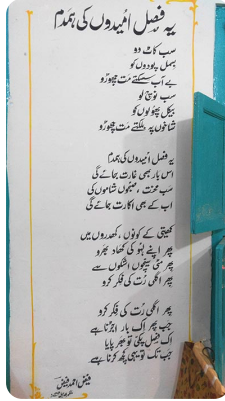 یہ فصل امیدوں کی ہمدم
سب کاٹ دو
بسمل پودوں کو
بے آب سسکتے مت چھوڑو
سب نوچ لو
بیکل پھولوں کو
شاخوں پہ بلکتے مت چھوڑو
یہ فصل امیدوں کی ہمدم
اس بار بھی غارت جائے گی
سب محنت، صبحوں شاموں کی
اب کے بھی اکارت جائے گی
کھیتی کے کونوں، کھدروں میں
پھر اپنے لہو کی کھاد بھرو
پھر مٹی سینچو اشکوں سے
پھر اگلی رت کی فکر کرو
پھر اگلی رت کی فکر کرو
جب پھر اک بار اجڑنا ہے
اک فصل پکی تو بھر پایا
جب تک تو یہی کچھ کرنا ہے
فیض احمد فیض